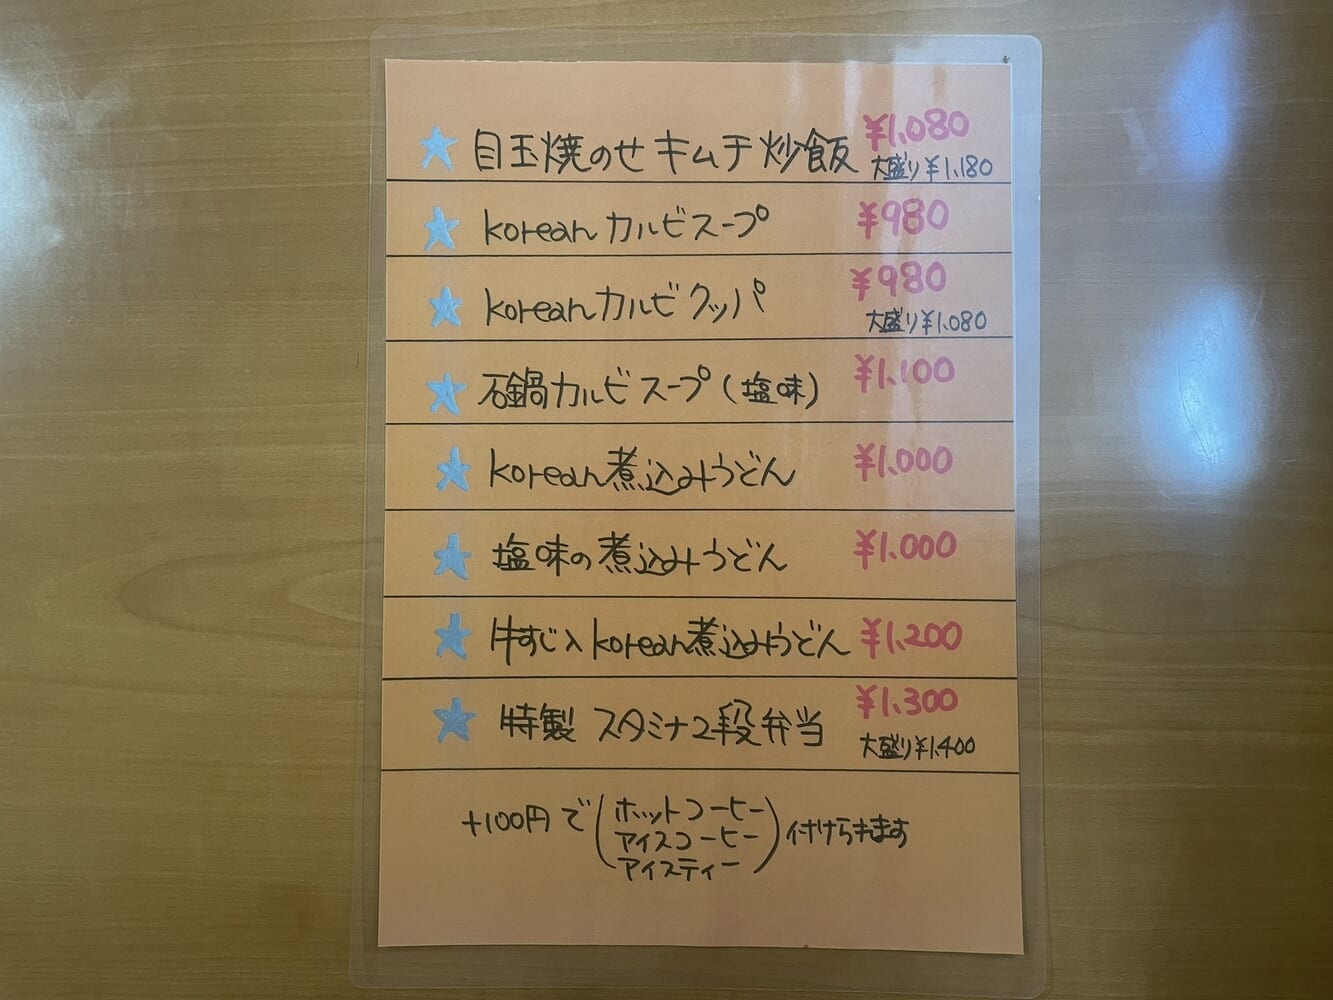 ★ 目玉焼のせキムチ炒飯 ¥1,080
大盛り¥1,180
★ koreanカルビスープ ¥980
★ koreanカルビクッパ ¥980
大盛り¥1,080
★ 石鍋カルビスープ(塩味) ¥1,100
★ korean煮込みうどん ¥1,000
★ 塩味の煮込みうどん ¥1,000
★ 牛すじ入korean煮込みうどん ¥1,200
★ 特製スタミナ2段弁当 ¥1,300
大盛り¥1,400
+100円で(ホットコーヒー
アイスコーヒー
アイスティー)付けられます